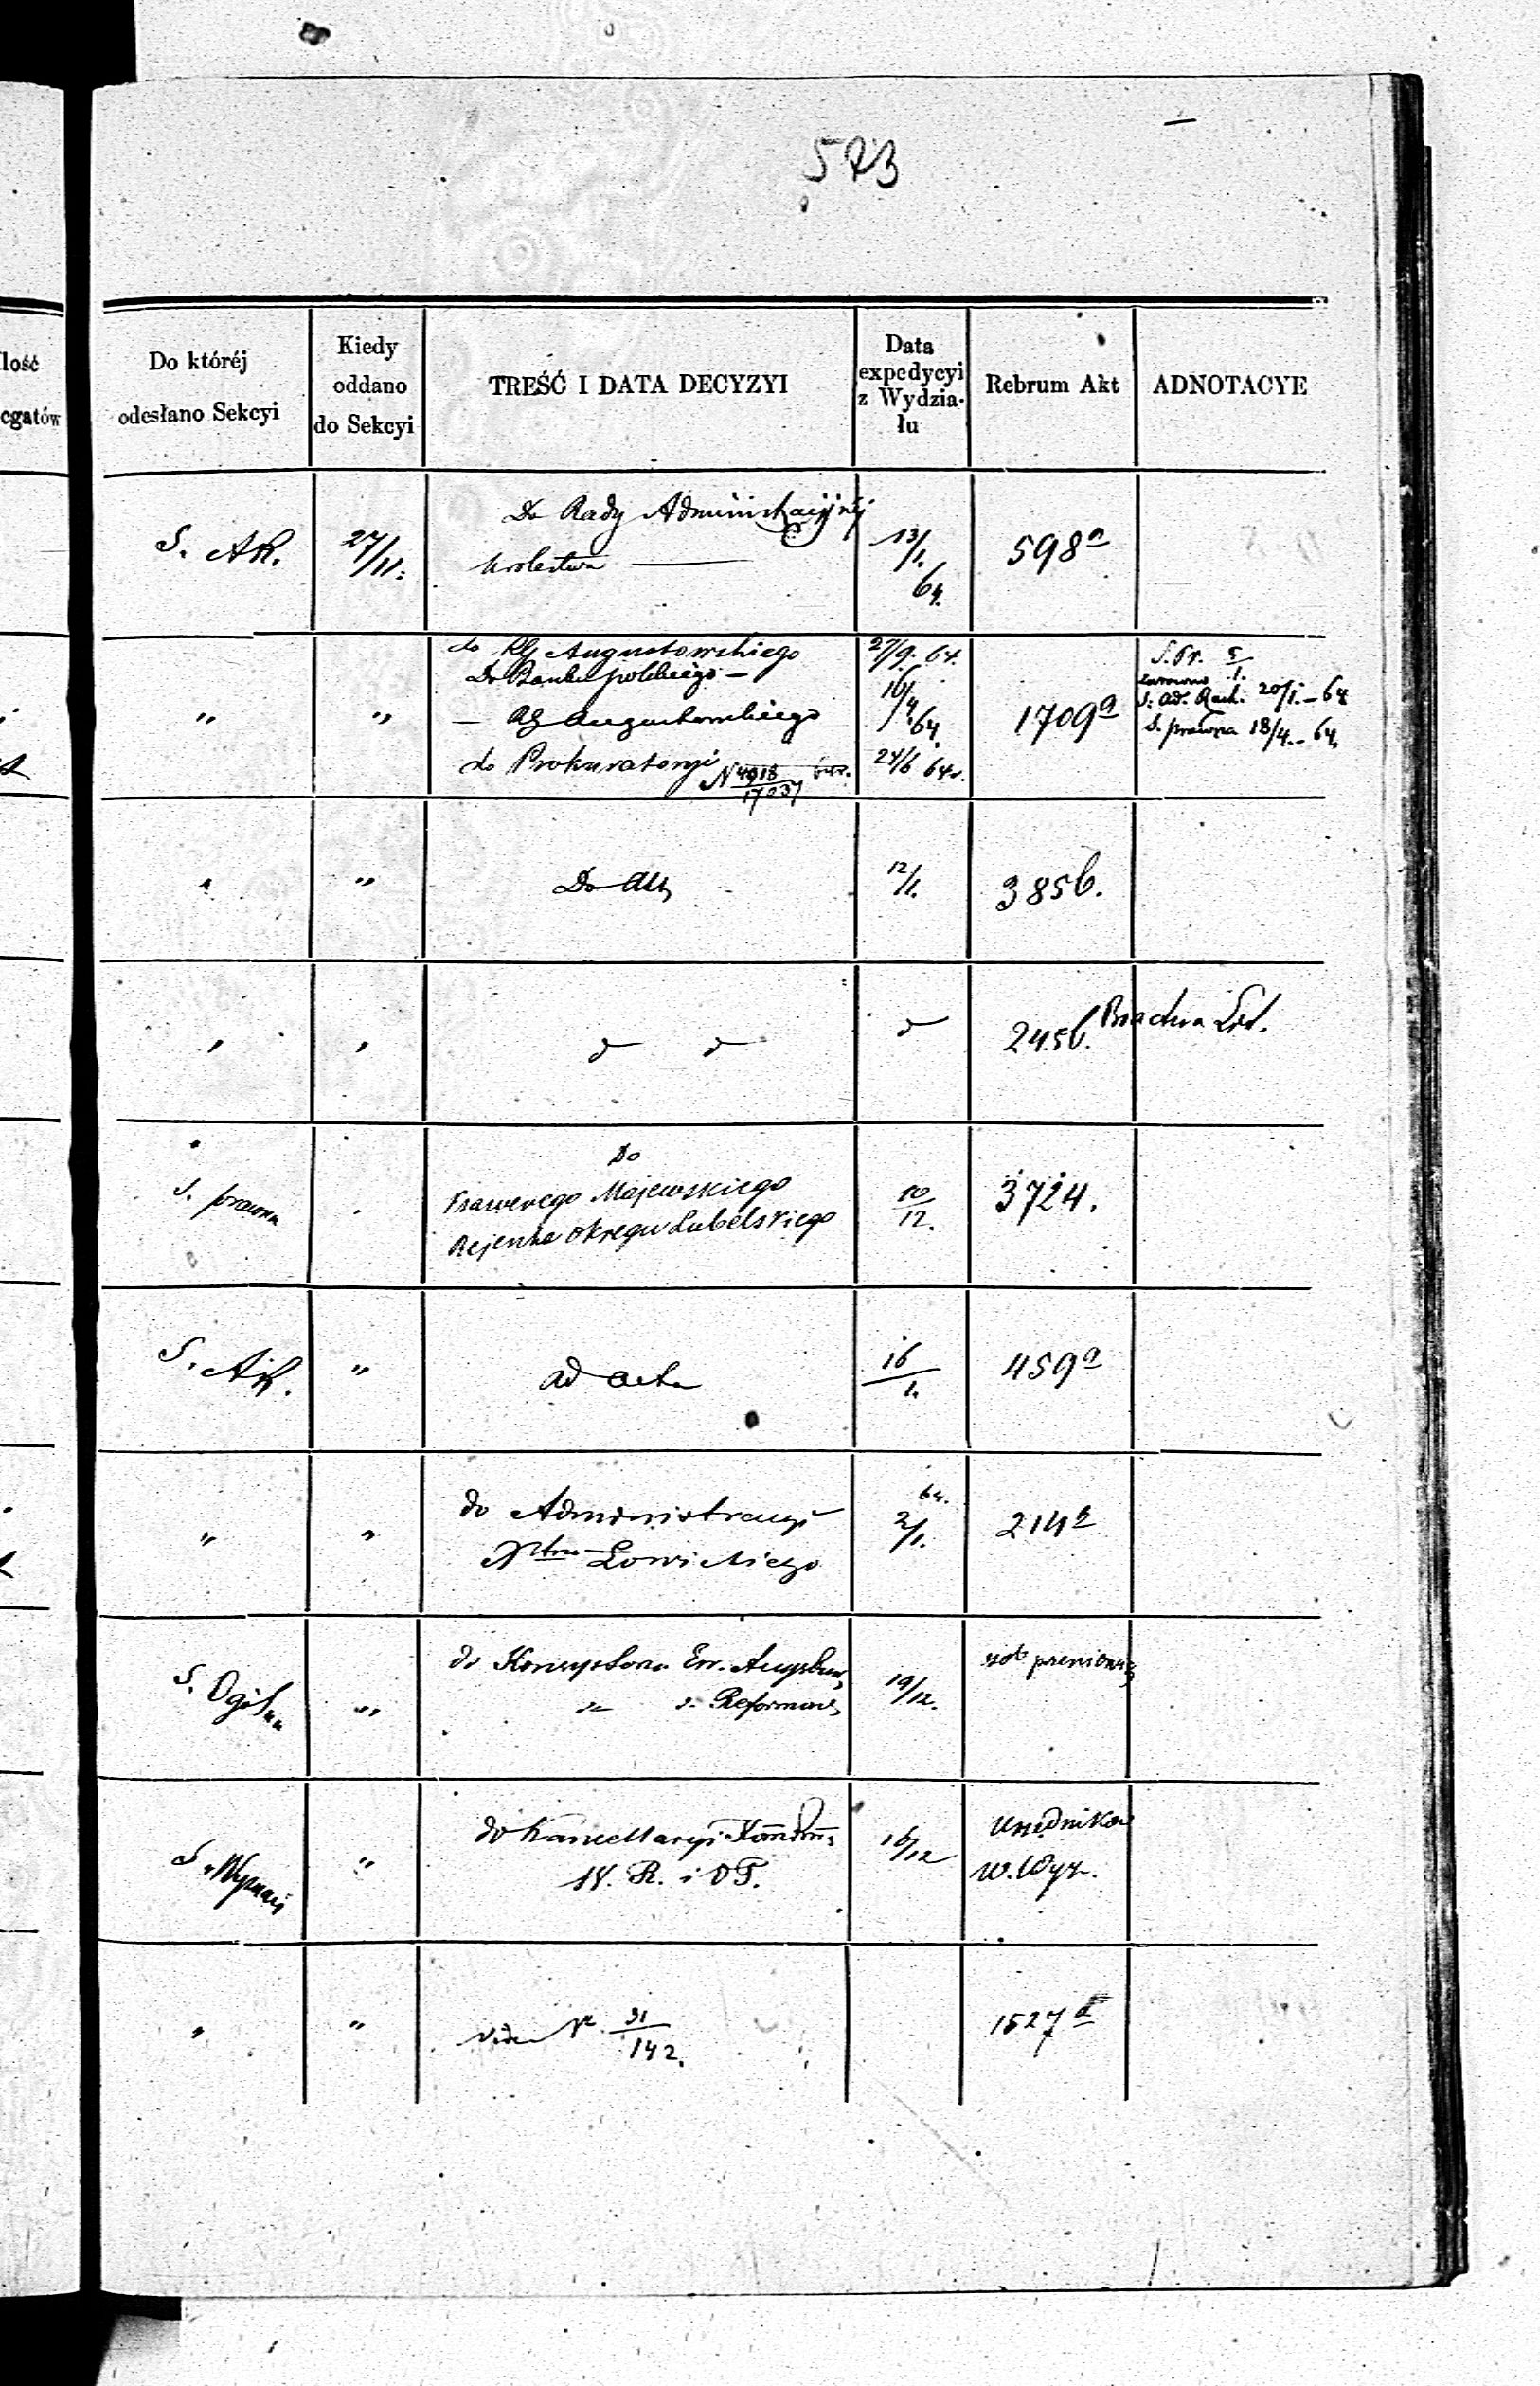 523
Ilość
egatów
Do któréj
odesłano Sekcyi
Kiedy
oddano
do Sekcyi
TREŚĆ I DATA DECYZYI
Data
expedycyi
z Wydzia-
łu
Rebrum Akt
ADNOTACYE
S. AR.
27/11.
Do Rady Administracyjnéj
Królestwa
13/1.
64.
598a
"
"
do RG Augustowskiego
Do Banku polskiego —
— RG Augustowskiego
do Prokuratoryi N 4918/17237 64r.
27/9. 64.
16/4 64.
24/6 64r.
1709a
S. Pr. 5/1.
S. Ad. Rach. 20/1. - 64
S. prawna 18/4. - 64.
"
"
Do Akt
12/1.
385b.
"
"
d d
d
245b.
Bractwa
S. prawna
Do
Ksawerego Majewskiego
Rejenta okręgu Lubelskiego
10/12.
3724.
S. AR.
"
ad acta
16/1.
459a
"
"
do Administracyi
Xtwa Łowickiego
64.
2/1.
214b
S. Ogólna
"
do Konsystorza Ew. Augsbur
Reformow
19/12.
S. Wyznań
"
do Kancellaryi
W. R. i O P.
16/12
Urzędników
W. Wyz.
"
"
Vide N. 31/142.
1527d